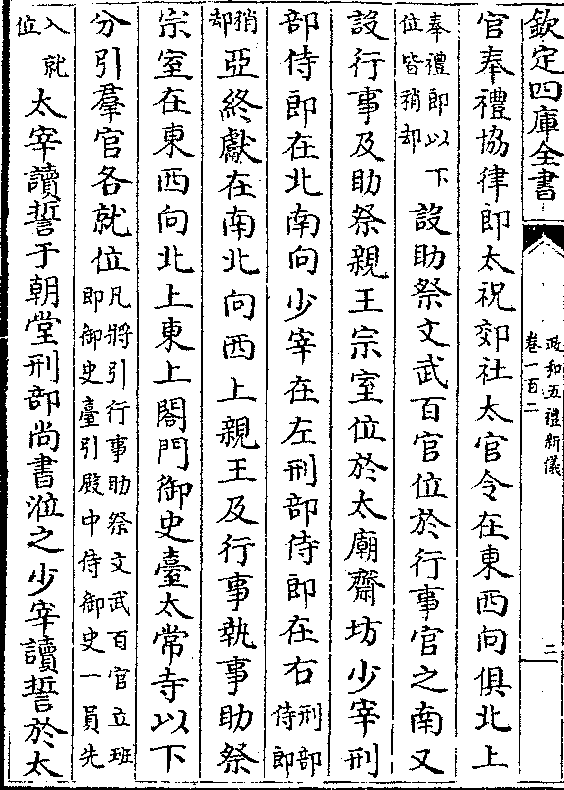 欽定四庫全書
政和五禮新儀
卷一百二
二
官奉禮協律郎太祝郊社太官令在東西向俱北上
奉禮郎以下
位皆稍却
設助祭文武百官位於行事官之南又
設行事及助祭親王宗室位於太廟齋坊少宰刑
部侍郎在北南向少宰在左刑部侍郎在右
刑部
侍郎
稍
却
亞終獻在南北向西上親王及行事執事助祭
宗室在東西向北上東上閤門御史臺太常寺以下
分引羣官各就位
凡將引行事助祭文武百官立班
即御史臺引殿中侍御史一員先
入就
位
太宰讀誓于朝堂刑部尚書涖之少宰讀誓於太